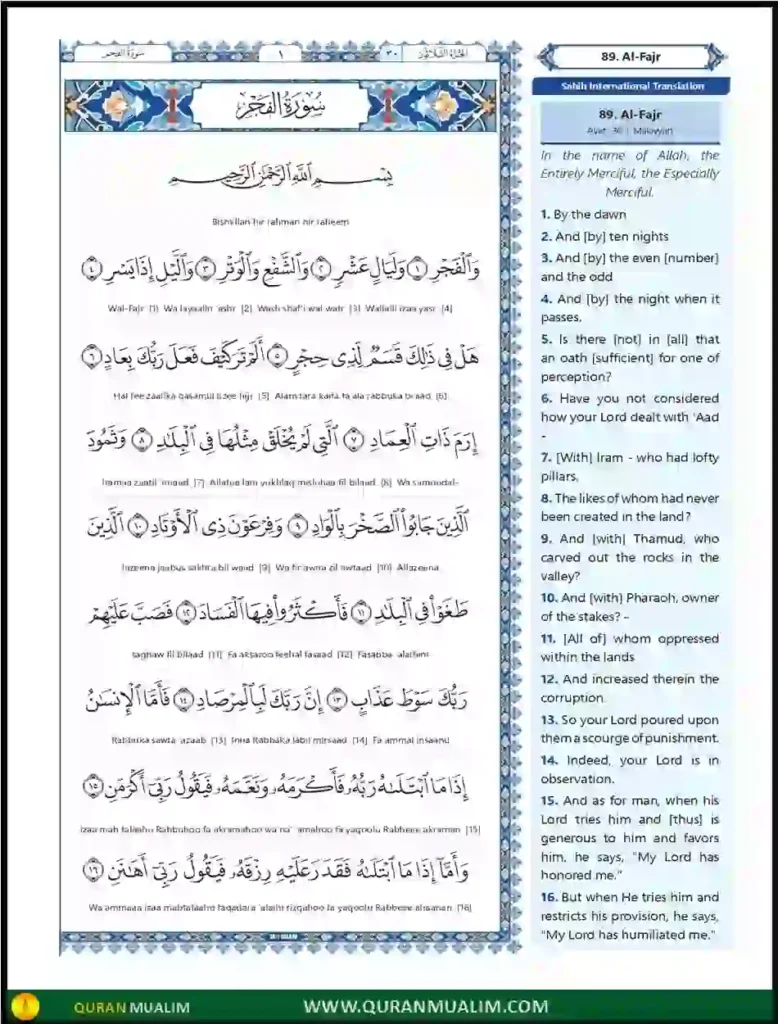 سورة الفجر
١
٣٠
الجزء الثلاثون
سُورَةُ الفَجْرِ
بِسْمِ اللَّهِ الرَّحْمَٰنِ الرَّحِيمِ
Bismillah hir rahman nir raheem
وَالْفَجْرِ ١ وَلَيَالٍ عَشْرٍ ٢ وَالشَّفْعِ وَالْوَتْرِ ٣ وَاللَّيْلِ إِذَا يَسْرِ ٤
Wal-Fajr [1] Wa layaalin 'ashr [2] Wash shaf'i wal watr [3] Wallaili izaa yasr [4]
هَلْ فِي ذَٰلِكَ قَسَمٌ لِّذِي حِجْرٍ ٥ أَلَمْ تَرَ كَيْفَ فَعَلَ رَبُّكَ بِعَادٍ ٦
Hal fee zaalika qasamul lizee hijr [5] Alam tara kaifa fa'ala rabbuka bi'aad [6]
إِرَمَ ذَاتِ الْعِمَادِ ٧ الَّتِي لَمْ يُخْلَقْ مِثْلُهَا فِي الْبِلَادِ ٨ وَثَمُودَ
Iramaa zaatil 'imaad [7] Allatee lam yukhlaq misluhaa fil bilaad [8] Wa samoodal-
الَّذِينَ جَابُوا الصَّخْرَ بِالْوَادِ ٩ وَفِرْعَوْنَ ذِي الْأَوْتَادِ ١٠ الَّذِينَ
lazeena jaabus sakhra bil waad [9] Wa fir'awna zil awtaad [10] Allazeena
طَغَوْا فِي الْبِلَادِ ١١ فَأَكْثَرُوا فِيهَا الْفَسَادَ ١٢ فَصَبَّ عَلَيْهِمْ
taghaw fil bilaad [11] Fa aksaroo feehal fasaad [12] Fasabba 'alaihim
رَبُّكَ سَوْطَ عَذَابٍ ١٣ إِنَّ رَبَّكَ لَبِالْمِرْصَادِ ١٤ فَأَمَّا الْإِنسَانُ
Rabbuka sawta 'azaab [13] Inna Rabbaka labil mirsaad [14] Fa ammal insaanu
إِذَا مَا ابْتَلَاهُ رَبُّهُ فَأَكْرَمَهُ وَنَعَّمَهُ فَيَقُولُ رَبِّي أَكْرَمَنِ ١٥
izaa mab talaahu Rabbuhoo fa akramahoo wa na' 'amahoo fa yaqoolu Rabbeee akraman [15]
وَأَمَّا إِذَا مَا ابْتَلَاهُ فَقَدَرَ عَلَيْهِ رِزْقَهُ فَيَقُولُ رَبِّي أَهَانَنِ ١٦
Wa ammaaa izaa mabtalaahu faqadara 'alaihi rizqahoo fa yaqoolu Rabbeee ahaanan [16]
89. Al-Fajr
Sahih International Translation
89. Al-Fajr
Ayat: 30 | Makkiyyah
In the name of Allah, the
Entirely Merciful, the Especially
Merciful.
1. By the dawn
2. And [by] ten nights
3. And [by] the even [number]
and the odd
4. And [by] the night when it
passes,
5. Is there [not] in [all] that
an oath [sufficient] for one of
perception?
6. Have you not considered
how your Lord dealt with 'Aad
-
7. [With] Iram - who had lofty
pillars,
8. The likes of whom had never
been created in the land?
9. And [with] Thamud, who
carved out the rocks in the
valley?
10. And [with] Pharaoh, owner
of the stakes? -
11. [All of] whom oppressed
within the lands
12. And increased therein the
corruption.
13. So your Lord poured upon
them a scourge of punishment.
14. Indeed, your Lord is in
observation.
15. And as for man, when his
Lord tries him and [thus] is
generous to him and favors
him, he says, "My Lord has
honored me."
16. But when He tries him and
restricts his provision, he says,
"My Lord has humiliated me."
QURAN MUALIM
WWW.QURANMUALIM.COM